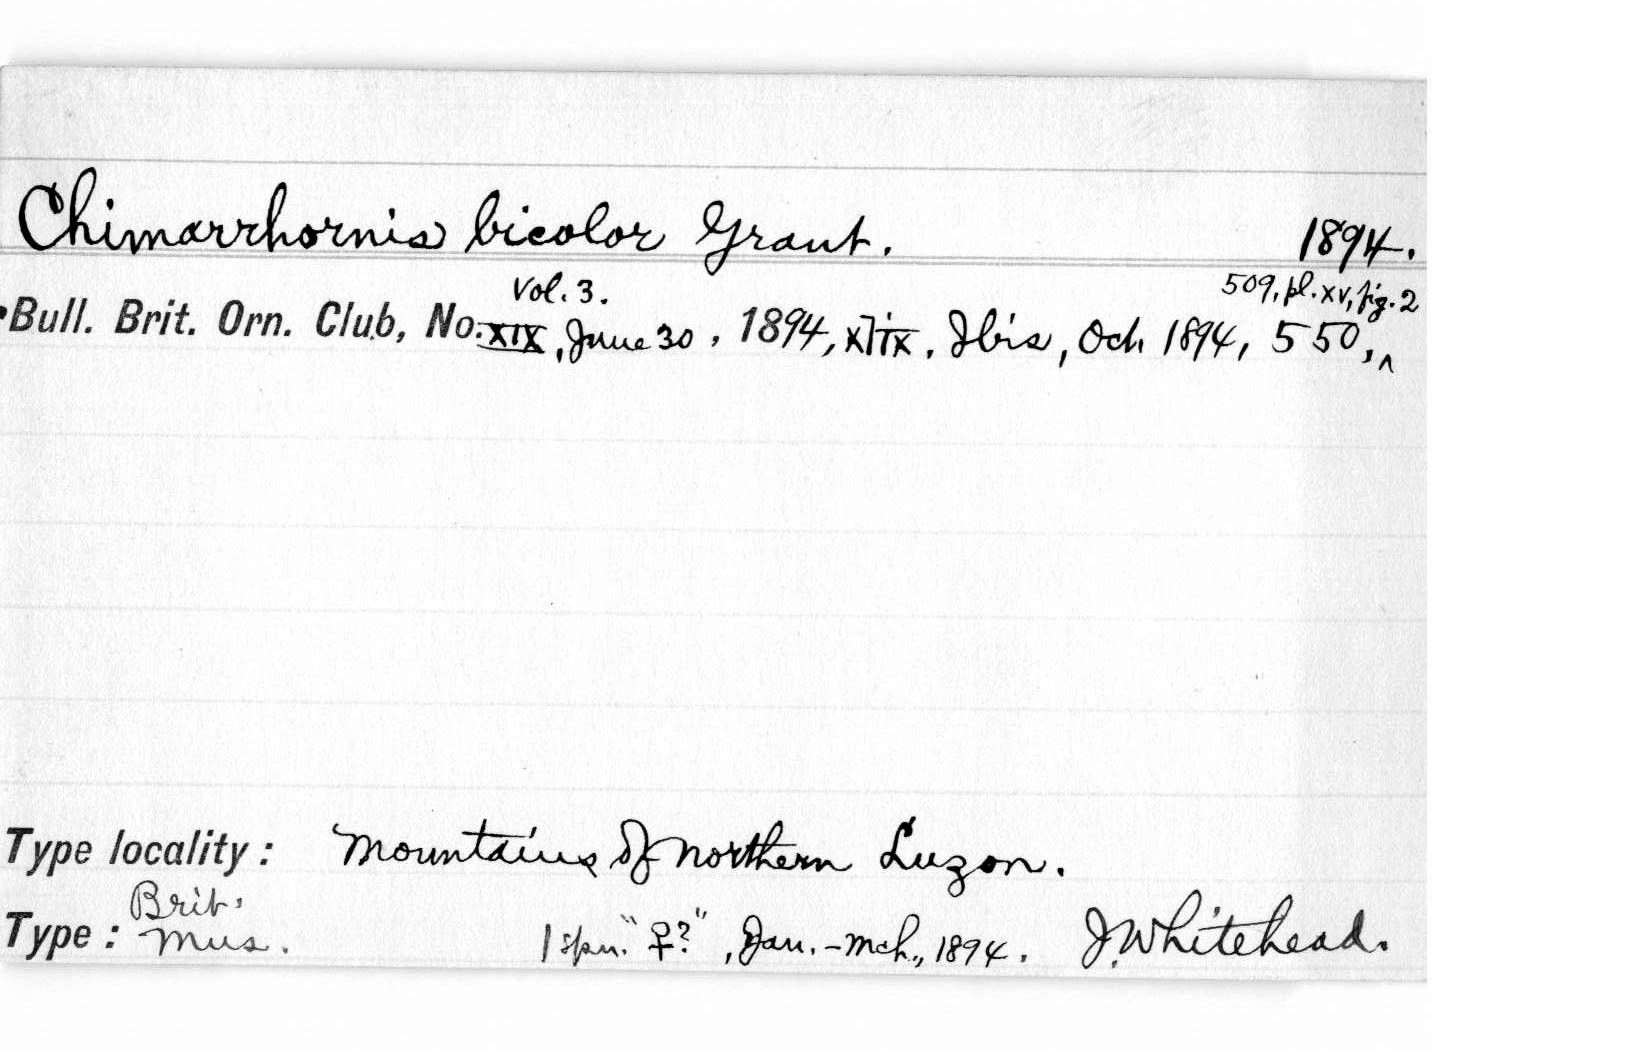 Chimarrhornis bicolor Grant. 1894.
Vol. 3. 509, pl. xv, fig. 2
Bull. Brit. Orn. Club, No. XIX, June 30, 1894, xlix. Ibis, Oct. 1894, 550, ^
Type locality: Mountains of northern Luzon.
Brit.
Type: Mus. 1 spn. "♀?", Jan.-Mch., 1894. J. Whitehead.